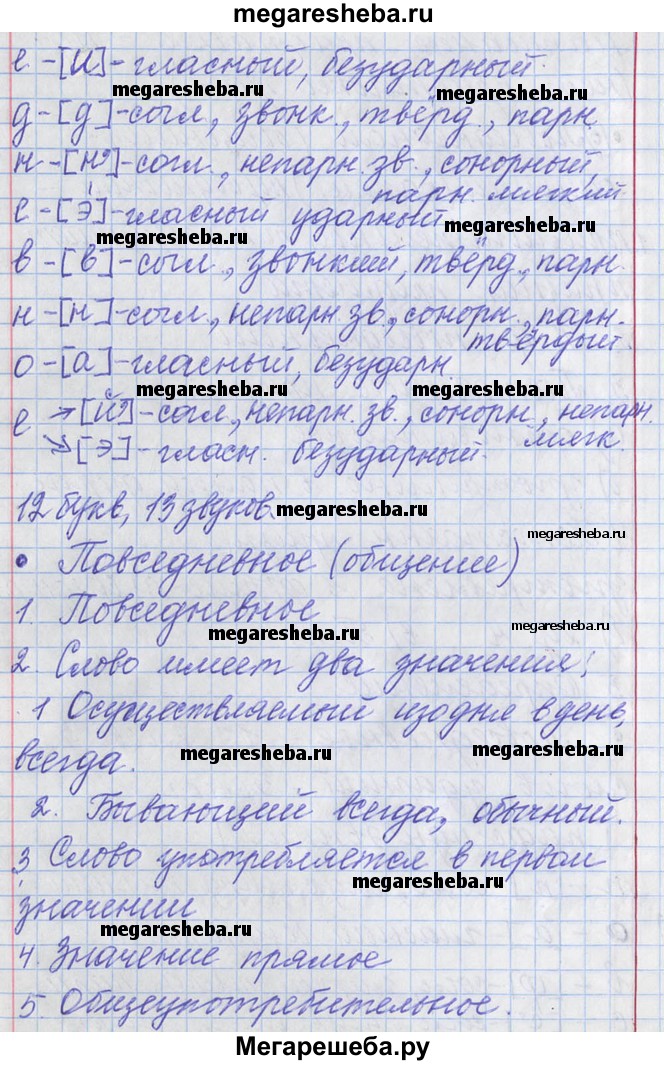 megaresheba.ru
е - [И] - гласный, безударный.
megaresheba.ru megaresheba.ru
д - [д] - согл., звонк., твёрд., парн.
н - [н'] - согл., непарн. зв., сонорный,
парн. мягкий
е - [э́] - гласный ударный
megaresheba.ru megaresheba.ru
в - [в] - согл., звонкий, твёрд., парн.
н - [н] - согл., непарн. зв., сонорн., парн.
твёрдый.
о - [а] - гласный, безударн.
megaresheba.ru megaresheba.ru
е → [Й'] - согл., непарн. зв., сонорн., непарн.
мягк.
↘ [э] - гласн. безударный.
12 букв, 13 звуков.
megaresheba.ru megaresheba.ru
• Повседневное (общение)
1. Повседневное
megaresheba.ru megaresheba.ru
2. Слово имеет два значения:
1 Осуществляемый изо дня в день,
всегда.
megaresheba.ru megaresheba.ru
2. Бывающий всегда, обычный.
3 Слово употребляется в первом
megaresheba.ru
значении
4. Значение прямое
5. Общеупотребительное.
Мегарешеба.ру